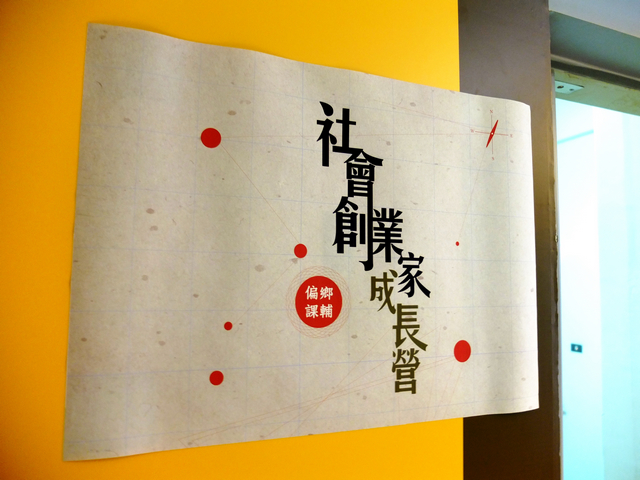 社會創業家成長營
偏鄉
課輔